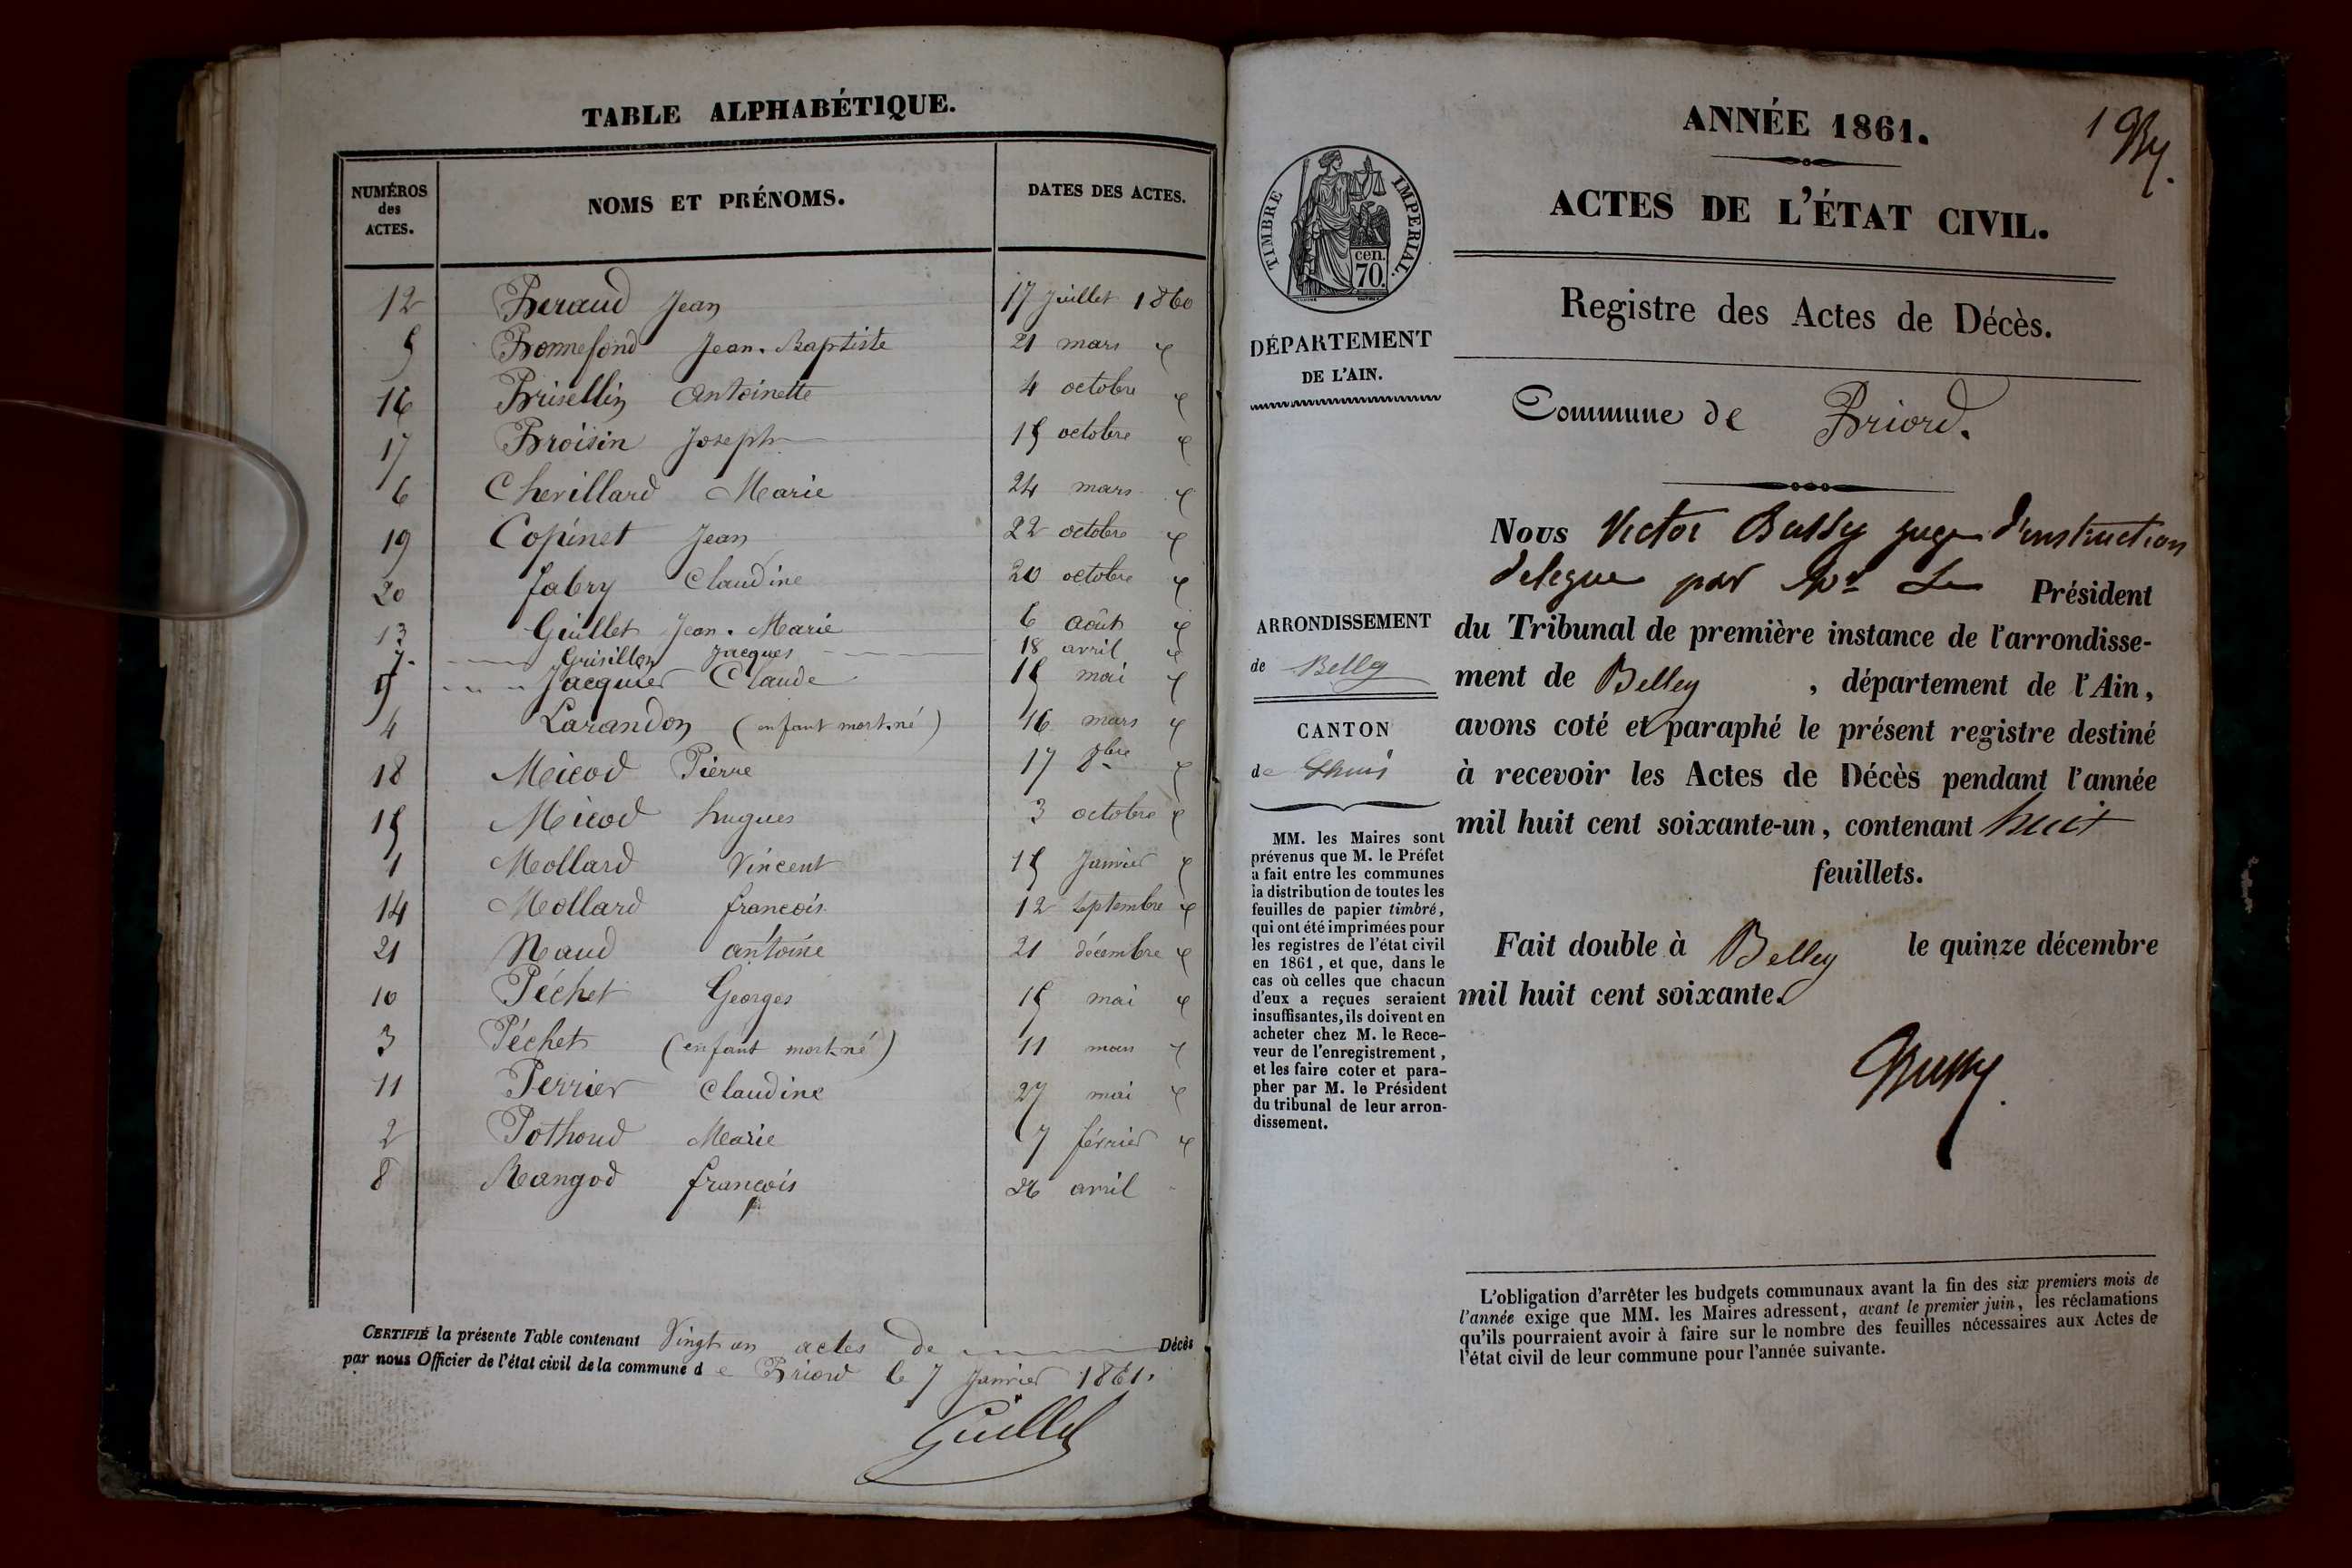 TABLE ALPHABÉTIQUE.
NUMÉROS des ACTES. NOMS ET PRÉNOMS. DATES DES ACTES.
12 Beraud Jean 17 Juillet 1860
5 Bonnefond Jean-Baptiste 21 mars
16 Brisellin Antoinette 4 octobre
17 Broisin Joseph 15 octobre
6 Chevillard Marie 24 mars
19 Copinet Jean 22 octobre
20 fabry Claudine 20 octobre
13 Guillet Jean-Marie 6 août
7 Grisillon Jacques 18 avril
9 Jacquier Claude 15 mai
4 Larandon (enfant mort-né) 16 mars
18 Micod Pierre 17 8bre
15 Micod hugues 3 octobre
1 Mollard Vincent 15 Janvier
14 Mollard françois 12 septembre
21 Naud antoine 21 décembre
10 Péchet Georges 15 mai
3 Péchet (enfant mort-né) 11 mars
11 Perrier Claudine 27 mai
2 Pothoud Marie 7 février
8 Rangod françois 26 avril
CERTIFIÉ la présente Table contenant Vingt un actes de Décès
par nous Officier de l'état civil de la commune de Briord le 7 Janvier 1861.
Guillet
1 By.
ANNÉE 1861.
ACTES DE L'ÉTAT CIVIL.
Registre des Actes de Décès.
Commune de Briord.
TIMBRE IMPERIAL.
cen.
70.
DÉPARTEMENT
DE L'AIN.
ARRONDISSEMENT
de Belley
CANTON
de Lhuis
MM. les Maires sont
prévenus que M. le Préfet
a fait entre les communes
la distribution de toutes les
feuilles de papier timbré,
qui ont été imprimées pour
les registres de l'état civil
en 1861, et que, dans le
cas où celles que chacun
d'eux a reçues seraient
insuffisantes, ils doivent en
acheter chez M. le Rece-
veur de l'enregistrement,
et les faire coter et para-
pher par M. le Président
du tribunal de leur arron-
dissement.
Nous Victor Bussy juge d'instruction
delegue par Mr Le Président
du Tribunal de première instance de l'arrondisse-
ment de Belley, département de l'Ain,
avons coté et paraphé le présent registre destiné
à recevoir les Actes de Décès pendant l'année
mil huit cent soixante-un, contenant huit
feuillets.
Fait double à Belley le quinze décembre
mil huit cent soixante.
Bussy
L'obligation d'arrêter les budgets communaux avant la fin des six premiers mois de
l'année exige que MM. les Maires adressent, avant le premier juin, les réclamations
qu'ils pourraient avoir à faire sur le nombre des feuilles nécessaires aux Actes de
l'état civil de leur commune pour l'année suivante.